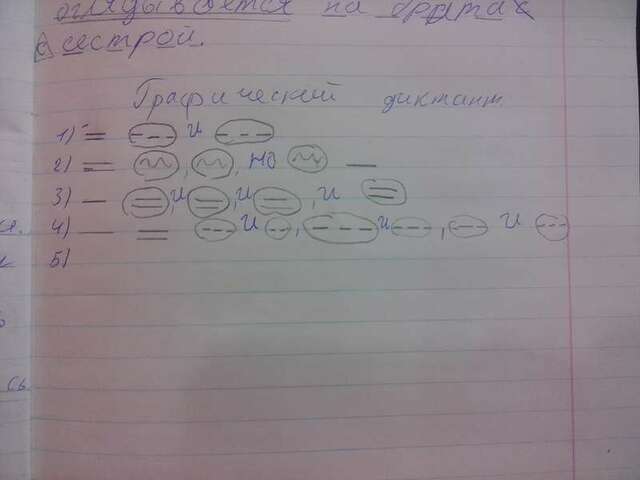 оглядывается на брата с
с сестрой.
Графический диктант.
1) и
2) , , но
3) , и , и , и
4) и , и , и
5)